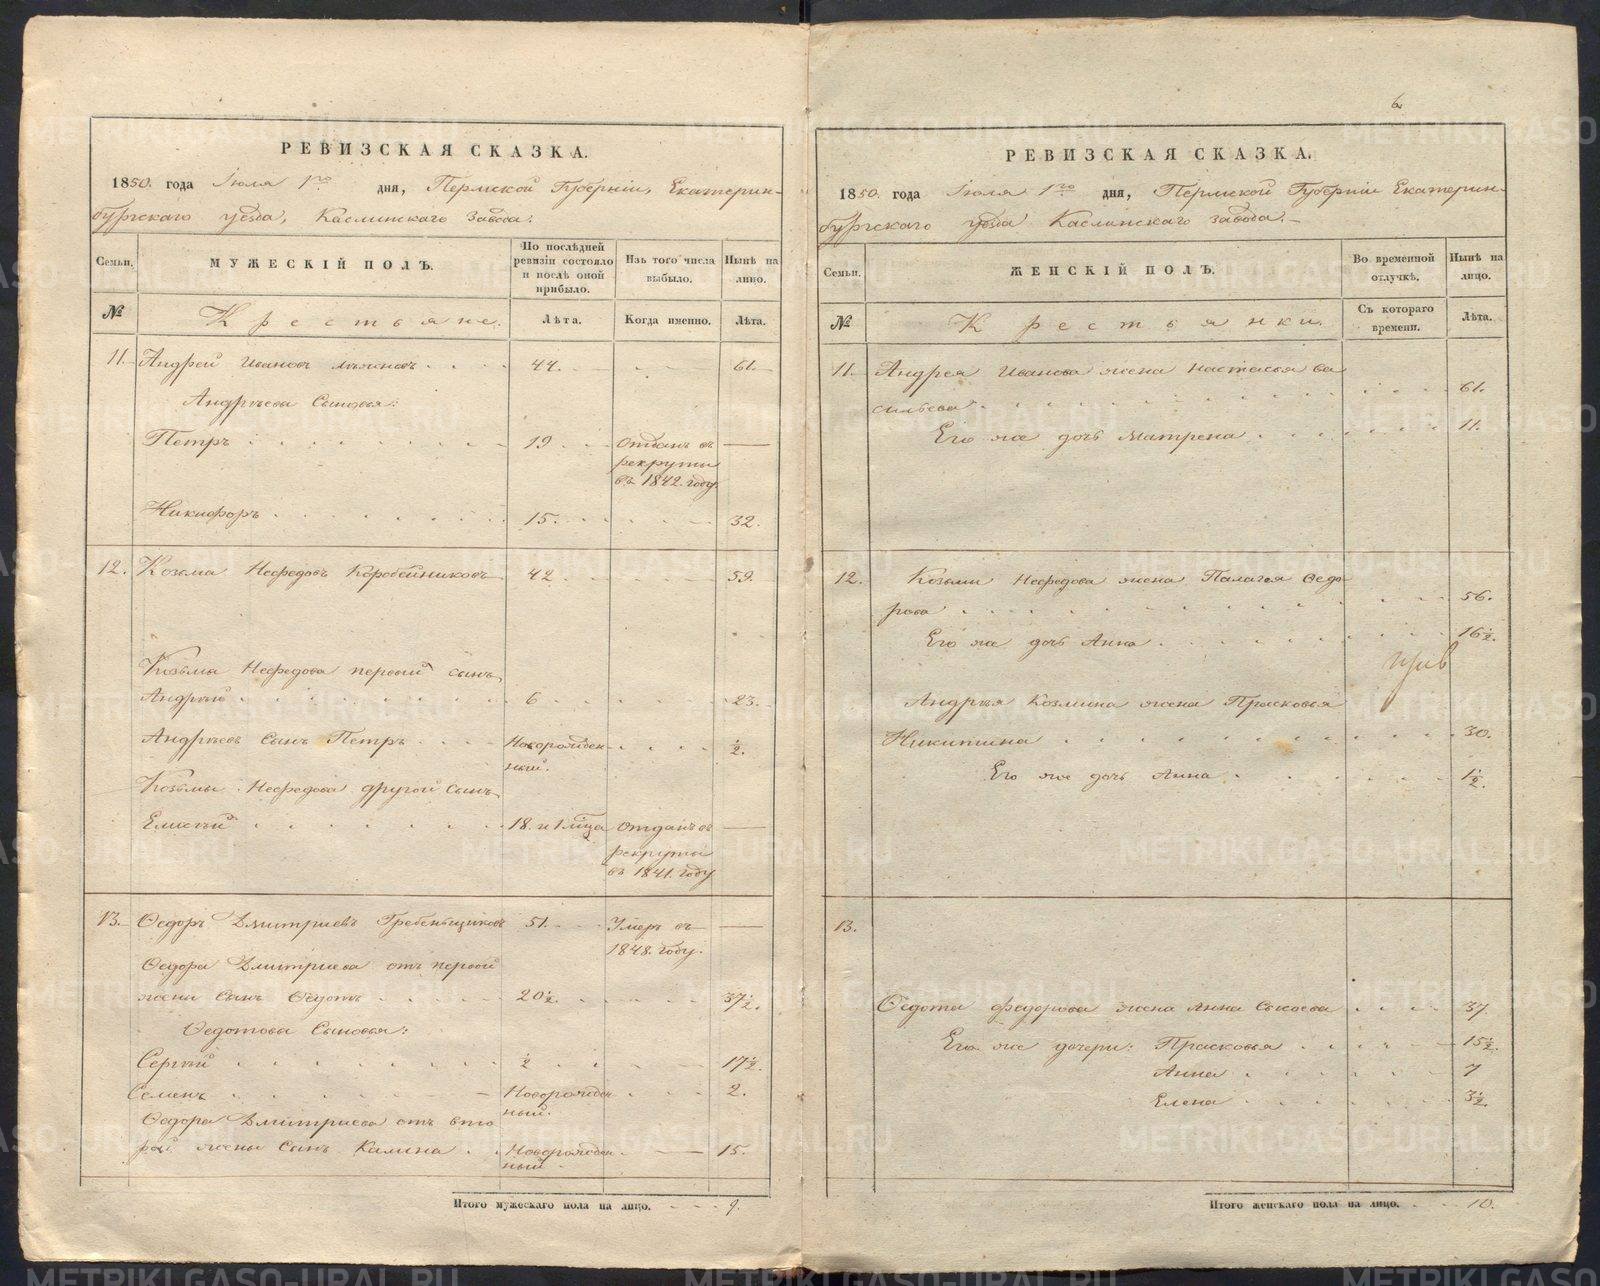 РЕВИЗСКАЯ СКАЗКА.
1850. года Іюля 1го дня, Пермской Губерніи, Екатерин-
бургскаго уезда, Каслинскаго Завода:
Семьи. МУЖЕСКІЙ ПОЛЪ. По послѣдней ревизіи состояло и послѣ оной прибыло. Изъ того числа выбыло. Нынѣ на лицо.
№ Крестьяне. Лѣта. Когда именно. Лѣта.
11. Андрей Ивановъ 44. 61.
Андрѣева Сыновья:
Петръ 19 Отданъ въ
рекруты
въ 1842. году.
Никифоръ 15. 32.
12. Козьма Нефедовъ Коробейниковъ 42 59.
Козьмы Нефедова первый сынъ
Андрѣй 6 23.
Андрѣевъ сынъ Петръ Новорожден-
ный. ½.
Козьмы Нефедова другой сынъ
Елисѣй 18. и 1 м͠ца Отданъ въ
рекруты
въ 1841. году
13. Ѳедоръ Дмитріевъ Гребеньщиковъ 51. Умеръ въ
1848. году.
Ѳедора Дмитриева отъ первой
жены Сынъ Ѳедотъ 20½. 37½.
Ѳедотова Сыновья:
Сергѣй ½ 17½.
Семенъ Новорожден-
ный. 2.
Ѳедора Дмитриева отъ вто
рой жены Сынъ Калина Новорожден
ный 15.
Итого мужескаго пола на лицо. 9.
6
РЕВИЗСКАЯ СКАЗКА.
1850. года Іюля 1го дня, Пермской Губерніи Екатерин-
бургскаго уезда Каслинскаго завода.
Семьи. ЖЕНСКІЙ ПОЛЪ. Во временной отлучкѣ. Нынѣ на лицо.
№ Крестьянки. Съ котораго времени. Лѣта.
11. Андрея Иванова жена Настасья Ва
сильева 61.
Его же дочь Матрена 11.
12. Козьмы Нефедова жена Палагея Ѳедо
рова 56.
Его же дочь Анна 16½.
Андрѣя Козмина жена Прасковья
Никитина 30.
Его же дочь Анна 1½.
13.
Ѳедота Федорова жена Анна Сысоева 37.
Его же дочери: Прасковья 15½.
Анна 7
Елена 3½.
Итого женскаго пола на лицо. 10.
METRIKI.GASO-URAL.RU